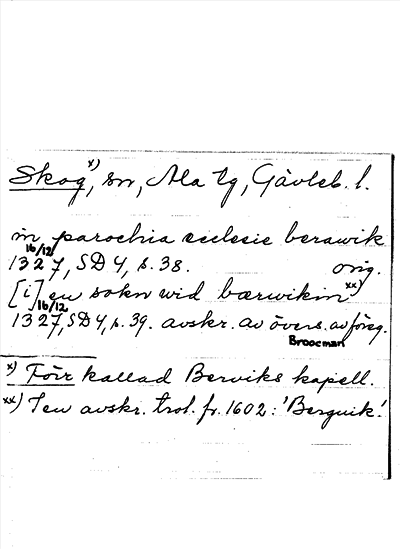 Skog x), sn, Ala tg, Gävleb. l.
in parochia ecclesie berawik
16/12
1327, SD 4, s. 38. orig.
[i] en sokn wid bærwikin xx)
16/12
1327, SD 4, s. 39. avskr. av övers. av föreg.
Broocman
x) Förr kallad Berviks kapell.
xx) I en avskr. trol. fr. 1602: 'Berguik'.